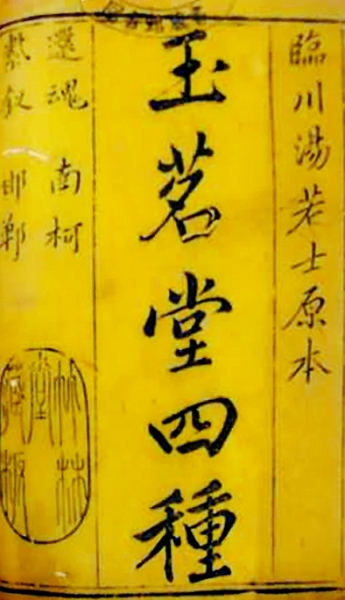 臨川湯若士原本
玉茗堂四種
還魂 南柯
紫釵 邯鄲
竹林
堂
藏板